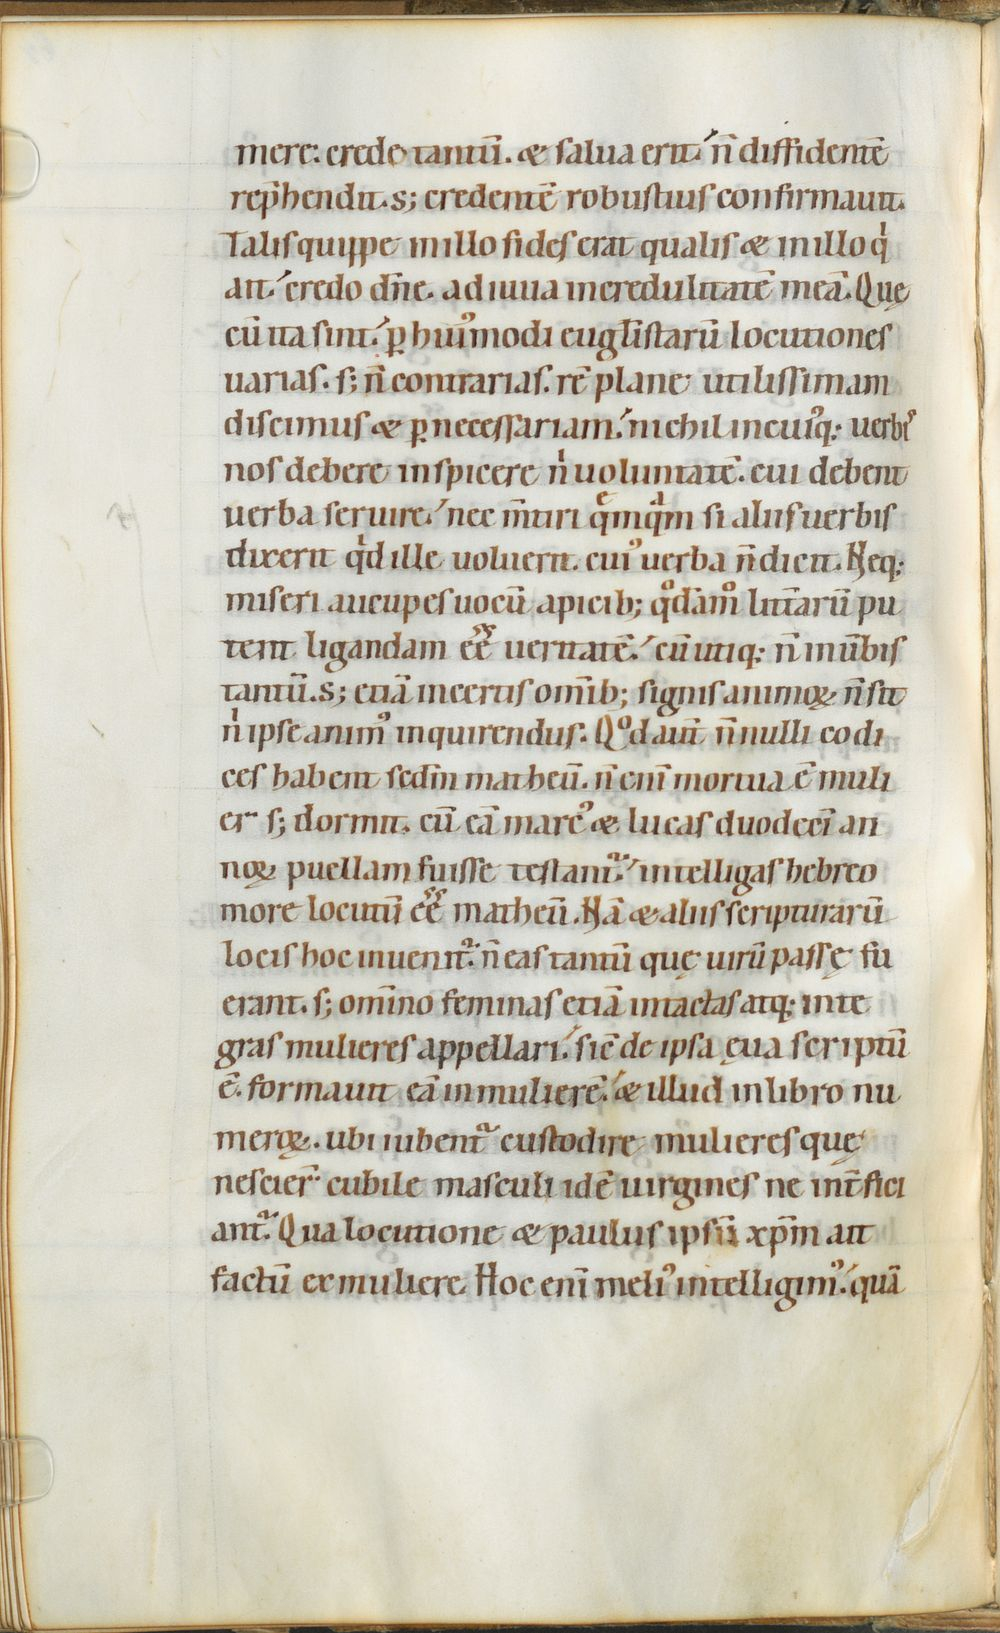 mere: credo tantū. & salua erit. n̄ diffidentē
rep̄hendit. s; credentē robustius confirmauit.
Talis quippe in illo fides erat qualis & in illo qͥ
ait. credo dn̄e. adiuua incredulitatē meā. Quę
cū ita sint. ꝑ huiꝰmodi eug̅listarū locutiones
uarias. s; n̄ contrarias. rē plane utilissimam
discimus & ꝑnecessariam. nichil in cuiꝰq; uerbꝭ
nos debere inspicere nͥ uoluntatē. cui debent
uerba seruire. nec m̄tiri qͤmqͣm si aliis uerbis
dixerit qͥd ille uoluerit. cuiꝰ uerba n̄ dicit. Neq;
miseri aucupes uocū apicib; qͦdāmͦ litt̄arū pu
tent ligandam ēē ueritatē. cū utiq; n̄ in ūbis
tantū. s; etiā in certis om̄ib; signis animoꝝ n̄ sit
nͥ ipse animꝰ inquirendus. Qͦd aut̄ n̄nulli codi
ces habent sed̄m matheū. n̄ enī mortua ē muli
er s; dormit. cū eā marcꝰ & lucas duodecī an
noꝝ puellam fuisse testant᷑. intelligas hebreo
more locutū ēē matheū. Nā & aliis scripturarū
locis hoc inuenit᷑. n̄ eas tantū quę uirū passę fu
erant. s; om̄ino feminas etiā intactas atq; inte
gras mulieres appellari. sic̄ de ipsa ęua scriptū
ē. formauit eā in mulierē. & illud in libro nu
meroꝝ. ubi iubent᷑ custodire mulieres quę
nescier̄ cubile masculi idē uirgines ne int̄fici
ant᷑. Qua locutione & paulus ipsū xp̄m ait
factū ex muliere. Hoc enī meliꝰ intelligimꝰ. quā